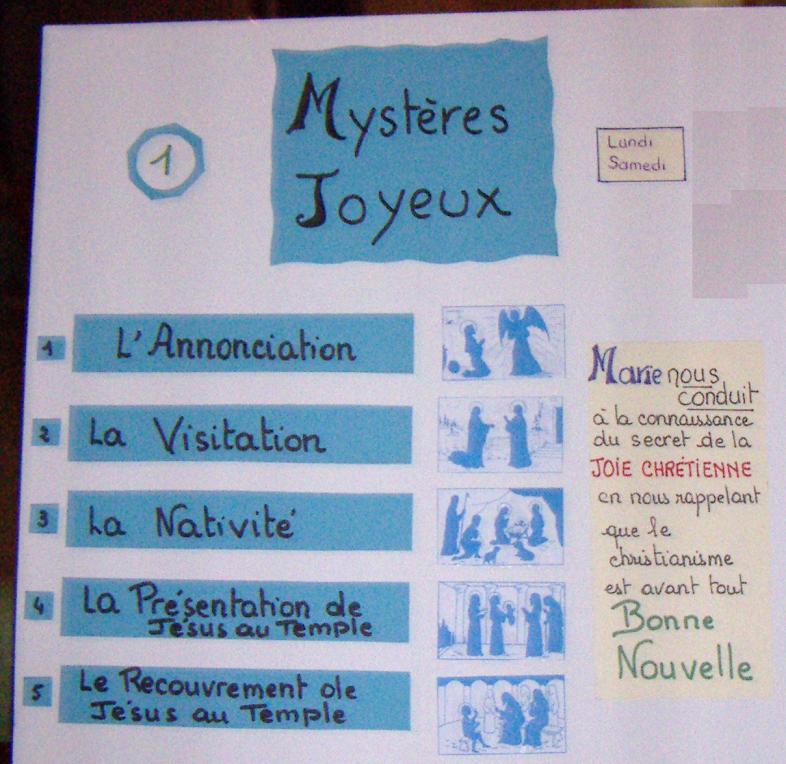 1
Mystères
Joyeux
Lundi
Samedi
1 L'Annonciation
2 La Visitation
3 La Nativité
4 La Présentation de
Jésus au Temple
5 Le Recouvrement de
Jésus au Temple
Marie nous
conduit
à la connaissance
du secret de la
JOIE CHRÉTIENNE
en nous rappelant
que le
christianisme
est avant tout
Bonne
Nouvelle